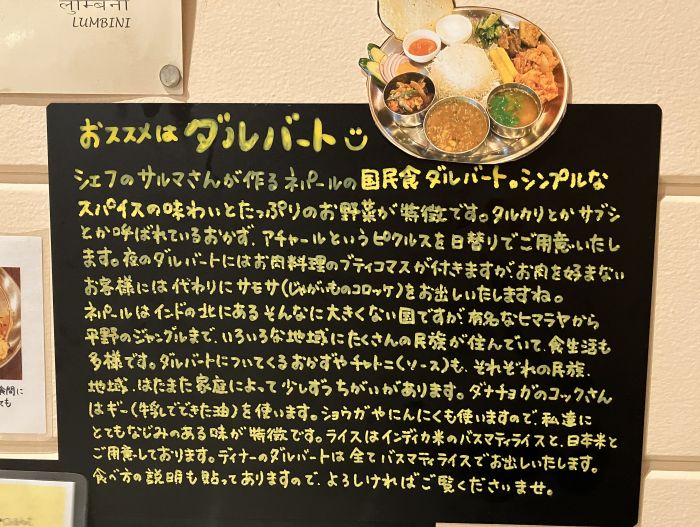 लुम्बिनी
LUMBINI
おススメは ダルバート
シェフのサルマさんが作るネパールの国民食ダルバート。シンプルな
スパイスの味わいとたっぷりのお野菜が特徴です。タルカリとかサブジ
とか呼ばれているおかず、アチャールというピクルスを日替りでご用意いたし
ます。夜のダルバートにはお肉料理のプティコマスが付きますが、お肉を好まない
お客様には代わりにサモサ(じゃがいものコロッケ)をお出しいたしますね。
ネパールはインドの北にあるそんなに大きくない国ですが、有名なヒマラヤから
平野のジャングルまで、いろいろな地域にたくさんの民族が住んでいて、食生活も
多様です。ダルバートについてくるおかずやチャトニ(ソース)も、それぞれの民族、
地域、はたまた家庭によって少しずつちがいがあります。ダナチョガのコックさん
はギー(牛乳でできた油)を使います。ショウガやにんにくも使いますので、私達に
とてもなじみのある味が特徴です。ライスはインディカ米のバスマティライスと、日本米と
ご用意しております。ディナーのダルバートは全てバスマティライスでお出しいたします。
食べ方の説明も貼ってありますので、よろしければご覧くださいませ。